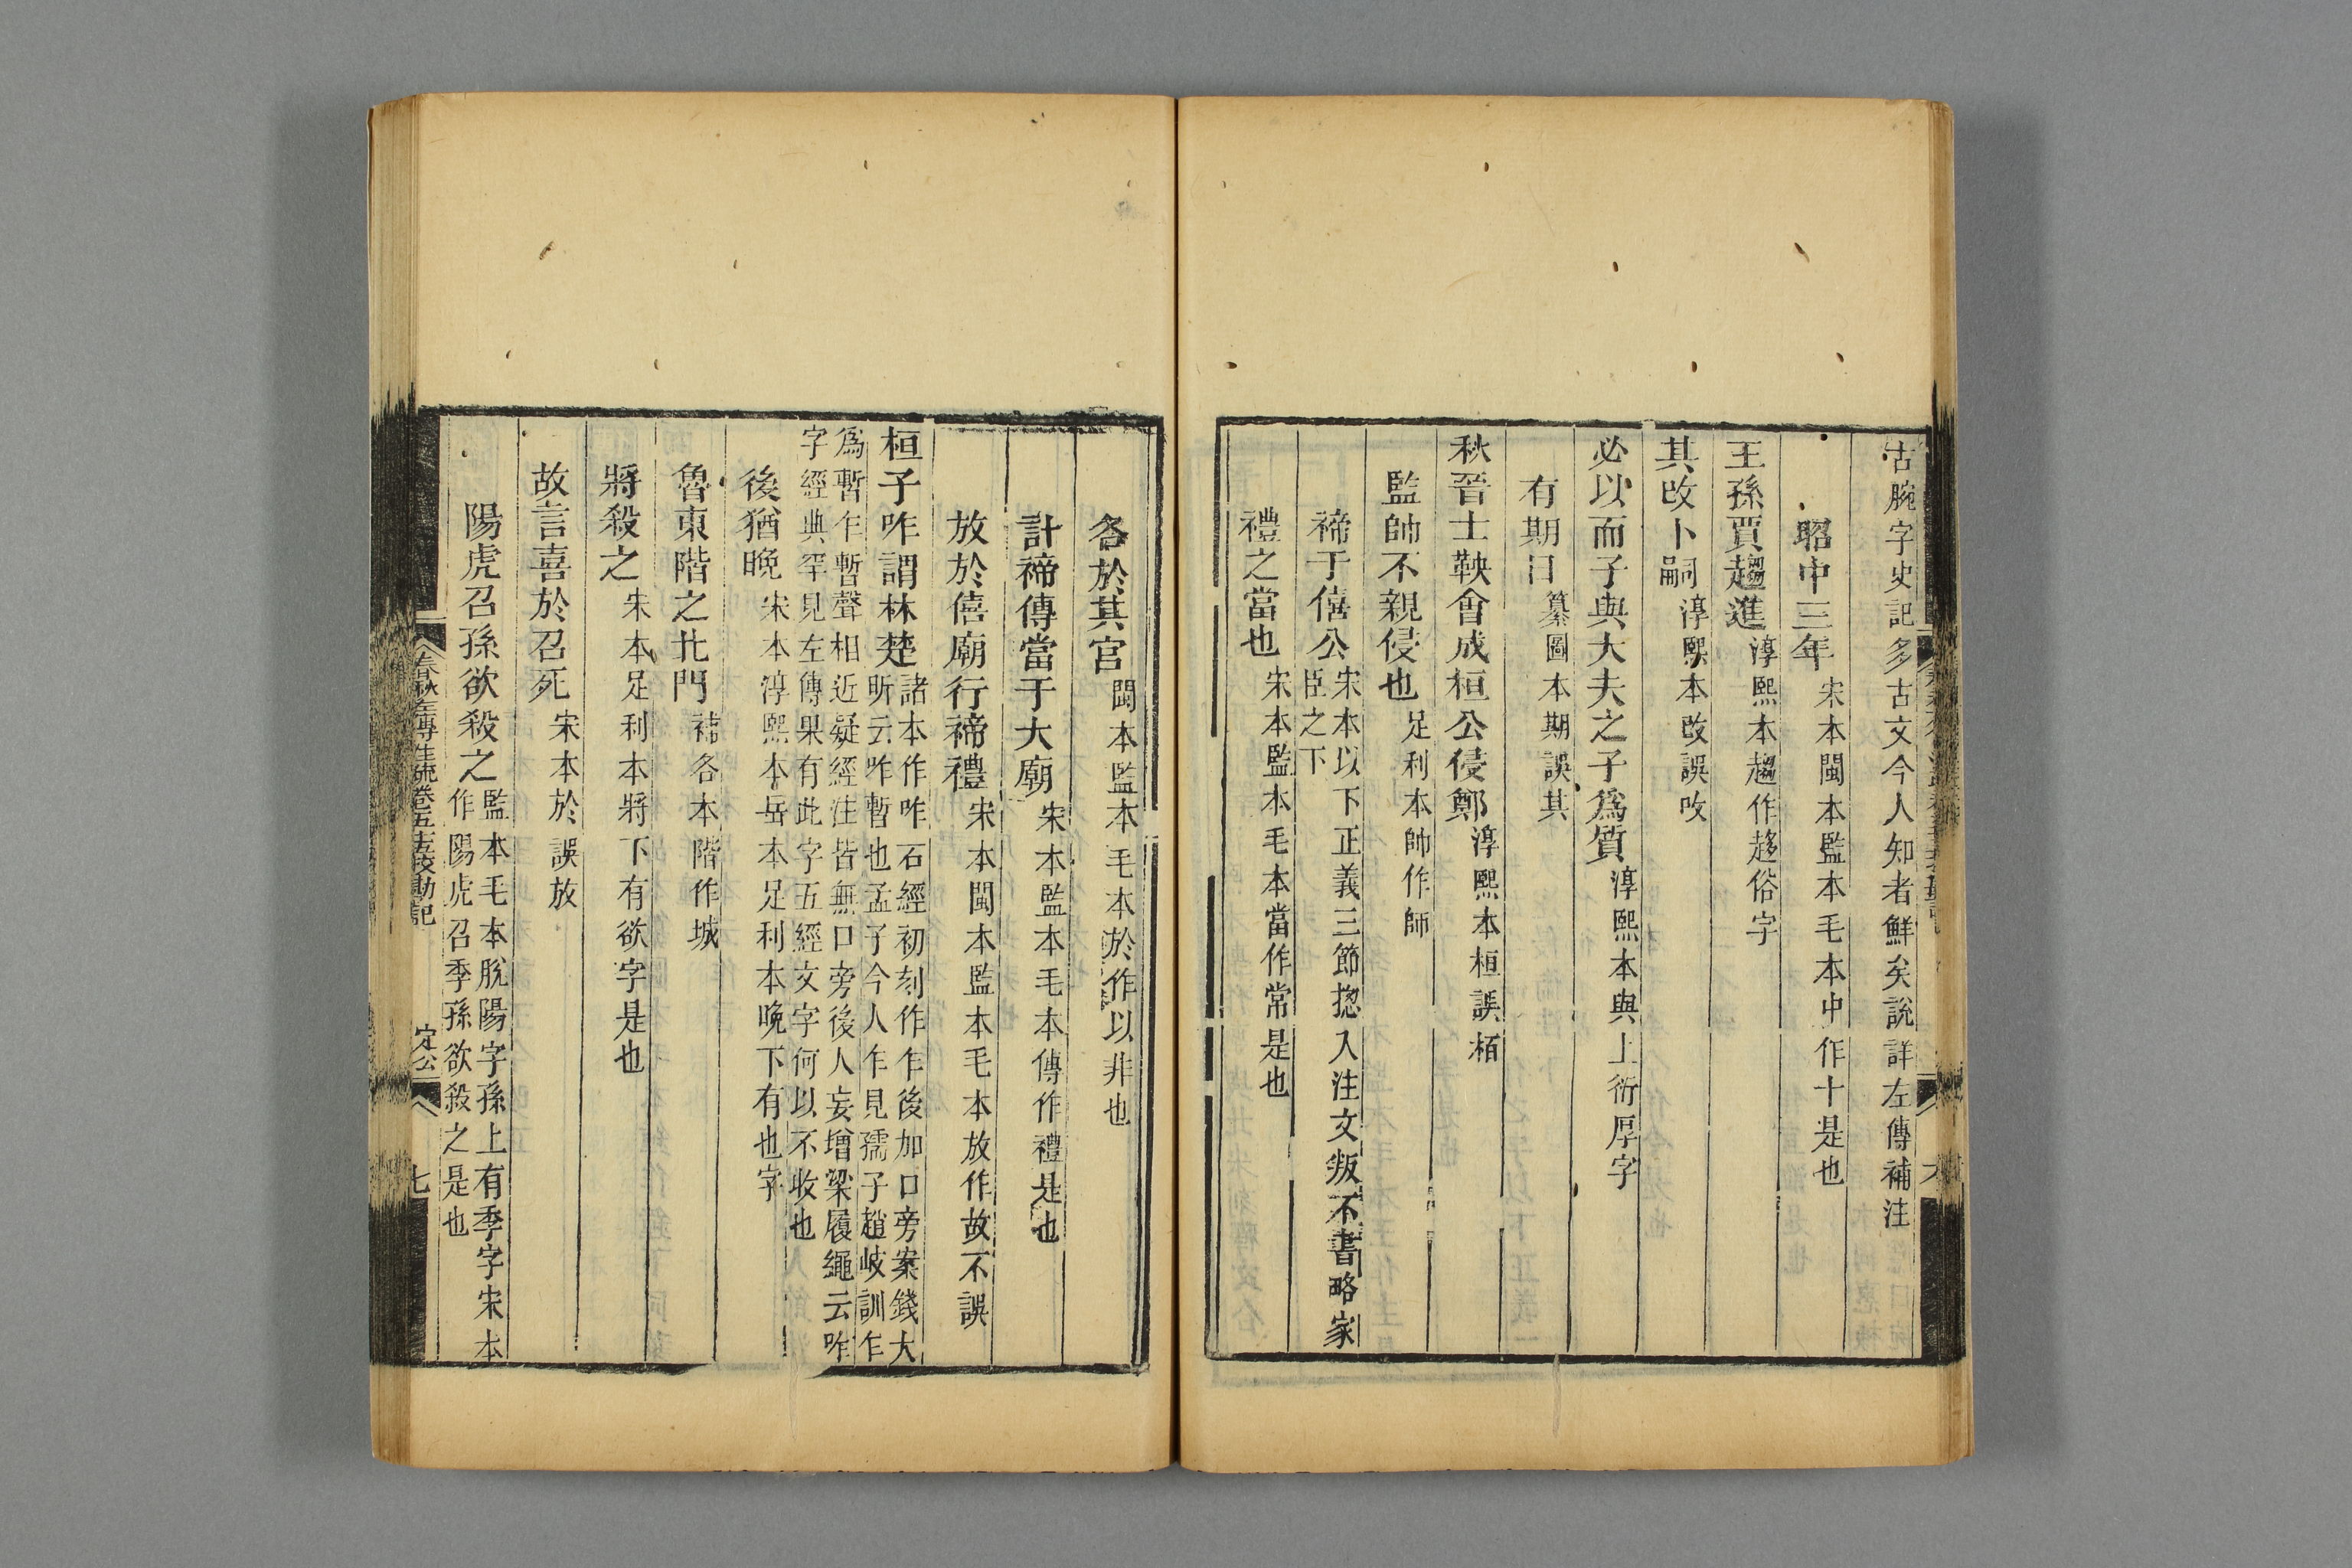 古腕字史記多古文今人知者鮮矣說詳左傳補注
昭中三年宋本閩本監本毛本中作十是也
王孫賈趨進淳熙本趨作趍俗字
其改卜嗣淳熙本改誤攺
必以而子與大夫之子爲質淳熙本與上衍厚字
有期日纂圖本期誤其
秋晉士鞅會成桓公侵鄭淳熙本桓誤栢
監帥不親侵也足利本帥作師
禘于僖公宋本以下正義三節揔入注文叛不書略家
臣之下
禮之當也宋本監本毛本當作常是也
各於其官閩本監本毛本於作以非也
計禘傳當于大廟宋本監本毛本傳作禮是也
放於僖廟行禘禮宋本閩本監本毛本放作故不誤
桓子咋謂林楚諸本作咋石經初刻作乍後加口旁案錢大
昕云咋暫也孟子今人乍見孺子趙岐訓乍
爲暫乍暫聲相近疑經注皆無口旁後人妄增梁履繩云咋
字經典罕見左傳果有此字五經文字何以不收也
後猶晚宋本淳熙本岳本足利本晚下有也字
魯東階之北門補各本階作城
將殺之宋本足利本將下有欲字是也
故言喜於召死宋本於誤放
陽虎召孫欲殺之監本毛本脫陽字孫上有季字宋本
作陽虎召季孫欲殺之是也
春秋左傳注疏卷五十五校勘記 定公 七